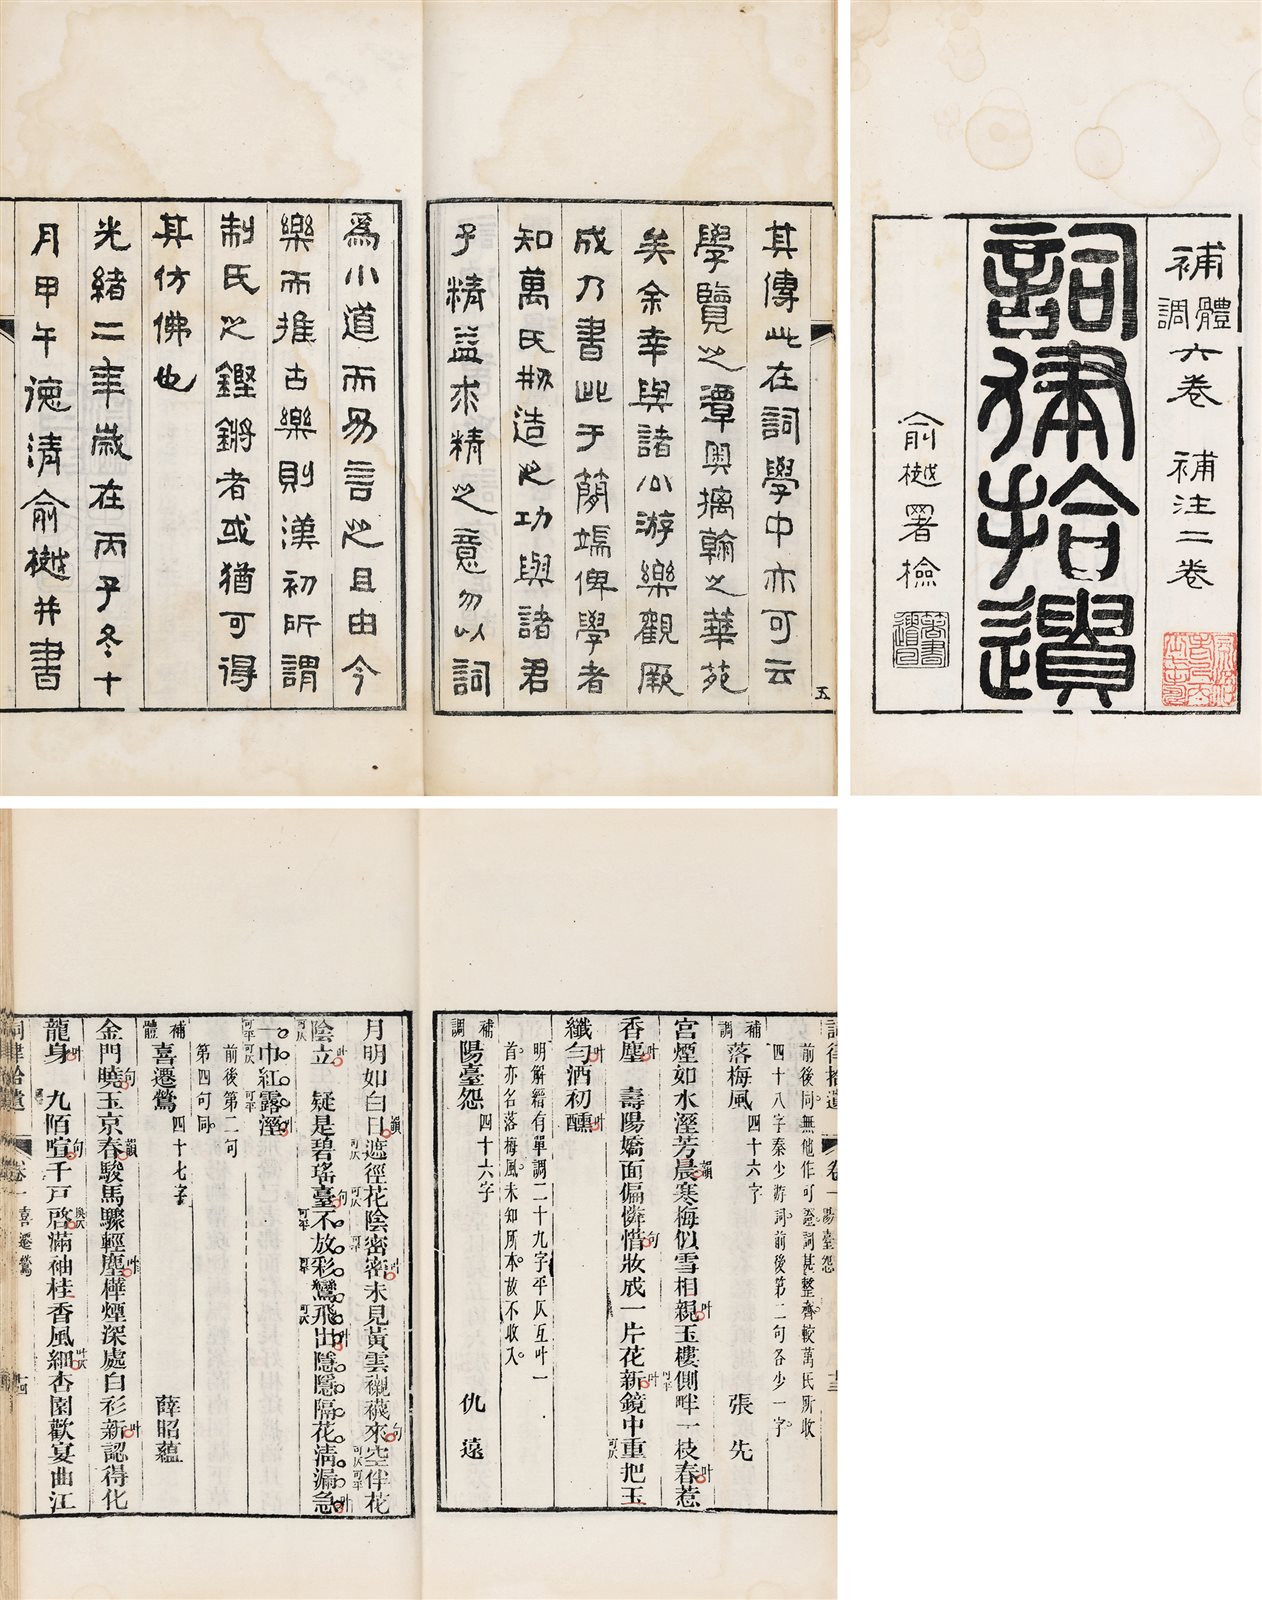 補調體六卷　補注二卷
詞律拾遺
俞樾署檢
其傳此在詞學中亦可云
學覽之潭奧摛翰之華苑
矣余幸與諸公游樂觀厥
成乃書此于簡端俾學者
知萬氏刱造之功與諸君
子精益求精之意勿以詞
五
爲小道而易言之且由今
樂而推古樂則漢初所謂
制氏之鏗鏘者或猶可得
其仿佛也
光緒二年歲在丙子冬十
月甲午德清俞樾并書
詞律拾遺　卷一　陽臺怨　十三
前後同無他作可證詞甚整齊較萬氏所收
四十八字秦少游詞前後第二句各少一字
補調　落梅風　四十六字　張先
宮煙如水溼芳晨韻寒梅似雪相親叶玉樓側可平畔一枝春叶惹
香塵叶　壽陽嬌面偏憐惜句妝成一片花新叶鏡中重可仄把玉
纖勻叶酒初醺叶
明解縉有單調二十九字平仄互叶一
首亦名落梅風未知所本故不收入
補調　陽臺怨　四十六字　仇遠
月明如白日韻遮可仄徑花可仄陰密可平密叶未見黃雲襯襪來句空可仄伴可平花
陰可仄立叶　疑是碧瑤臺句不可平放彩可平鸞飛可仄出叶隱隱隔花清漏急叶
一可平巾可仄紅露可平溼叶
前後第二句
第四句同
補體　喜遷鶯　四十七字　薛昭蘊
金門曉句玉京春韻駿馬驟輕塵叶樺煙深處白衫新叶認得化
龍身叶　九陌喧句千戶啓換仄滿袖桂香風細叶仄杏園歡宴曲江
詞律拾遺　卷一　喜遷鶯　十四